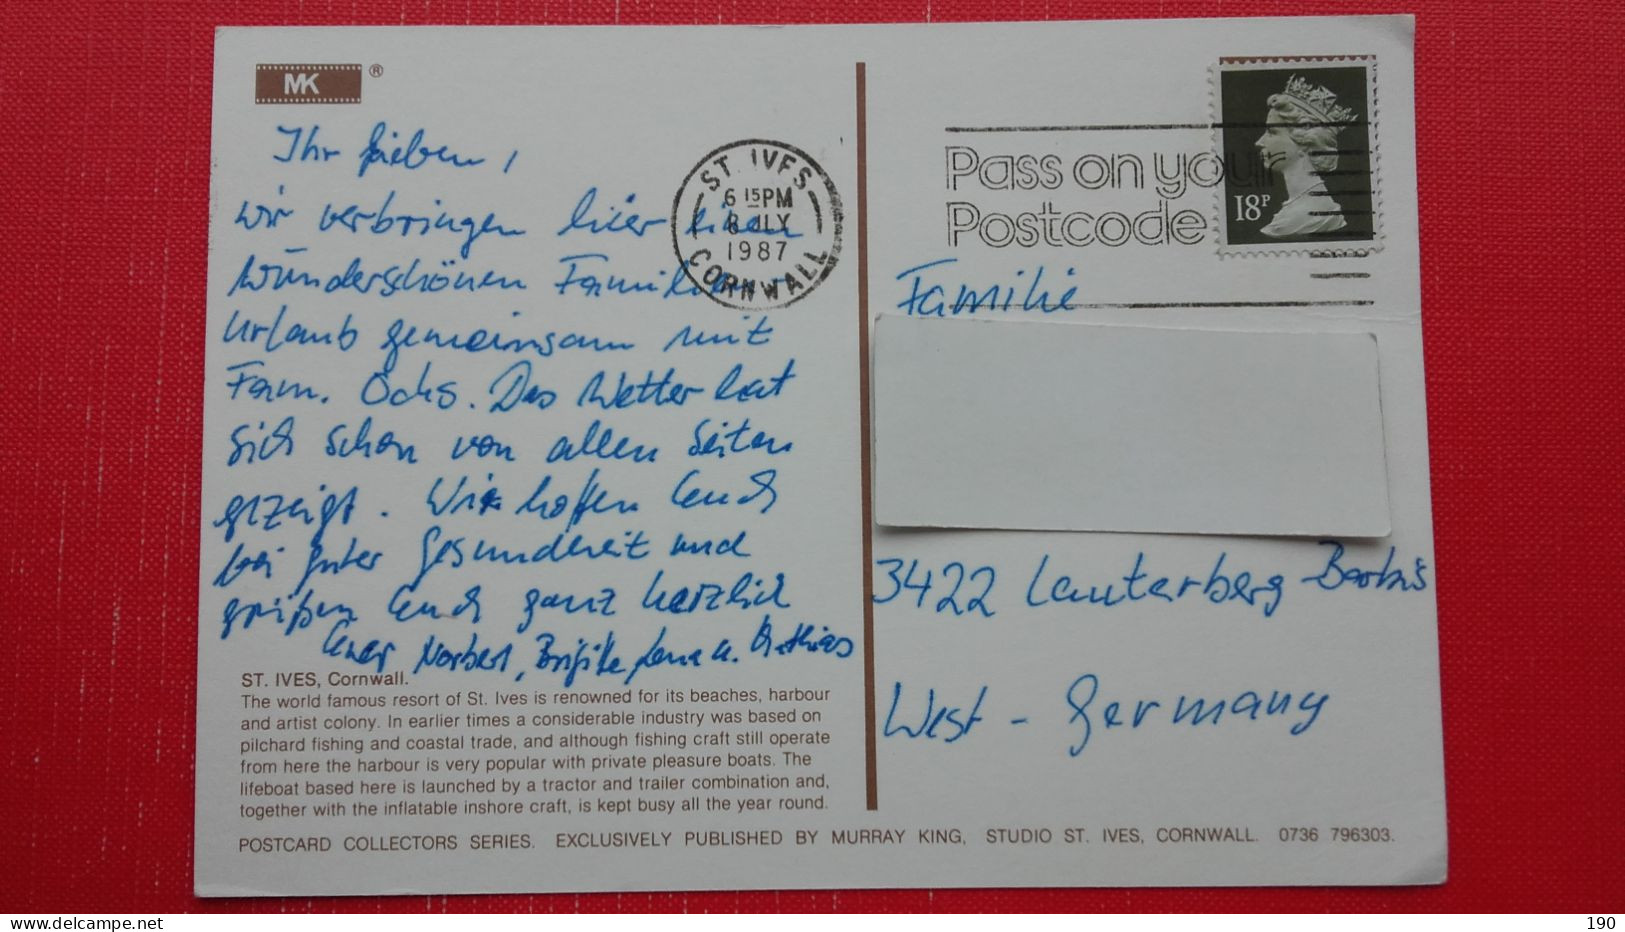 MK ®
Ihr Lieben,
wir verbringen hier einen
wunderschönen Familien
Urlaub gemeinsam mit
Fam. Ochs. Das Wetter hat
sich schon von allen Seiten
gezeigt. Wir hoffen Euch
bei guter Gesundheit und
grüßen Euch ganz herzlich
Euer Norbert, Brigitte, Lena u. Mathias
ST. IVES, Cornwall.
The world famous resort of St. Ives is renowned for its beaches, harbour
and artist colony. In earlier times a considerable industry was based on
pilchard fishing and coastal trade, and although fishing craft still operate
from here the harbour is very popular with private pleasure boats. The
lifeboat based here is launched by a tractor and trailer combination and,
together with the inflatable inshore craft, is kept busy all the year round.
ST. IVES
6 15 PM
8 JLY
1987
CORNWALL
Pass on your
Postcode
18P
Familie
3422 Lauterberg-Barbis
West-Germany
POSTCARD COLLECTORS SERIES. EXCLUSIVELY PUBLISHED BY MURRAY KING, STUDIO ST. IVES, CORNWALL. 0736 796303.
190